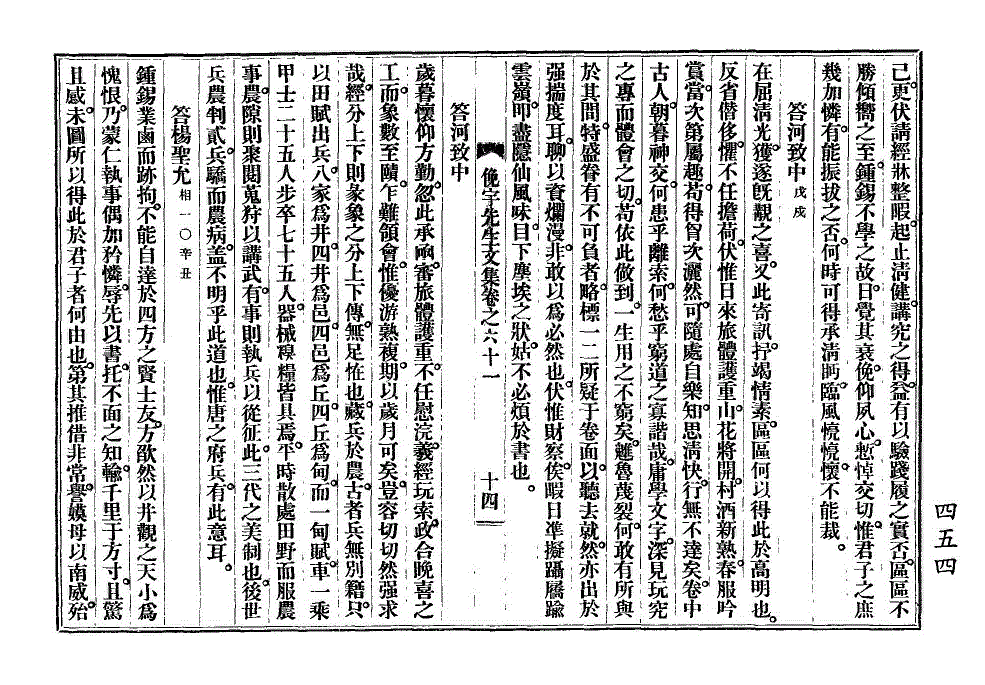 己。更伏請經牀整暇。起止淸健。講究之得。益有以驗踐履之實否。區區不
勝傾嚮之至。鍾錫不學之故。日覺其衰。俛仰夙心。慙悼交切。惟君子之庶
幾加憐。有能振拔之否。何時可得承淸眄。臨風愰愰。懷不能裁。
答河致中 戊戌
在屈淸光。獲遂旣覯之喜。又此寄訊。抒竭情素。區區何以得此於高明也。
反省僭侈。懼不任擔荷。伏惟日來旅體護重。山花將開。村酒新熟。春服吟
賞。當次第屬趣。苟得胷次灑然。可隨處自樂。知思淸快。行無不達矣。卷中
古人。朝暮神交。何患乎離索。何愁乎窮道之寡諧哉。庸學文字。深見玩究
之專而體會之切。苟依此倣到。一生用之不窮矣。雖魯莽裂。何敢有所與
於其間。特盛眷有不可負者。略標一二所疑于卷面。以聽去就。然亦出於
强揣度耳。聊以資爛漫。非敢以爲必然也。伏惟財察。俟暇日準擬躡屩踰
雲嶺。叩盡隱仙風味。目下塵埃之狀。姑不必煩於書也。
俛宇先生文集卷之六十一 十四
答河致中
歲暮懷仰方勤。忽此承凾。審旅體護重。不任慰浣。羲經玩索。政合晚喜之
工。而象數至賾。乍難領會。惟優游熟複。期以歲月可矣。豈容切切然强求
哉。經分上下則彖象之分上下傳。無足恠也。藏兵於農。古者兵無別籍。只
以田賦出兵。八家爲井。四井爲邑。四邑爲丘。四丘爲甸。而一甸賦車一乘
甲士二十五人步卒七十五人。器械糗糧皆具焉。平時散處田野而服農
事。農隙則聚閱蒐狩以講武。有事則執兵以從征。此三代之美制也。後世
兵農判貳。兵驕而農病。盖不明乎此道也。惟唐之府兵。有此意耳。
答楊聖允 相一〇辛丑
鍾錫業鹵而跡拘。不能自達於四方之賢士友。方欿然以井觀之天小爲
愧恨。乃蒙仁執事偶加矜憐。辱先以書。托不面之知。輸千里于方寸。且驚
且感。未圖所以得此於君子者何由也。第其推借非常。譽嫫母以南威。殆
四五四